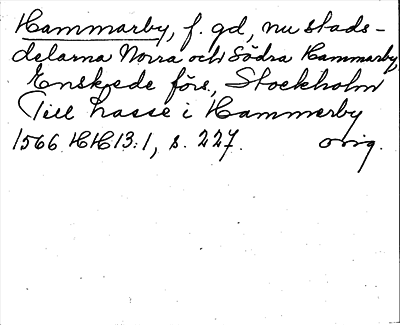 Hammarby, f. gd, nu stads-
delarna Norra och Södra Hammarby,
Enskede förs, Stockholm
Till Lasse i Hammerby
1566 HH 13:1, s. 227. orig.